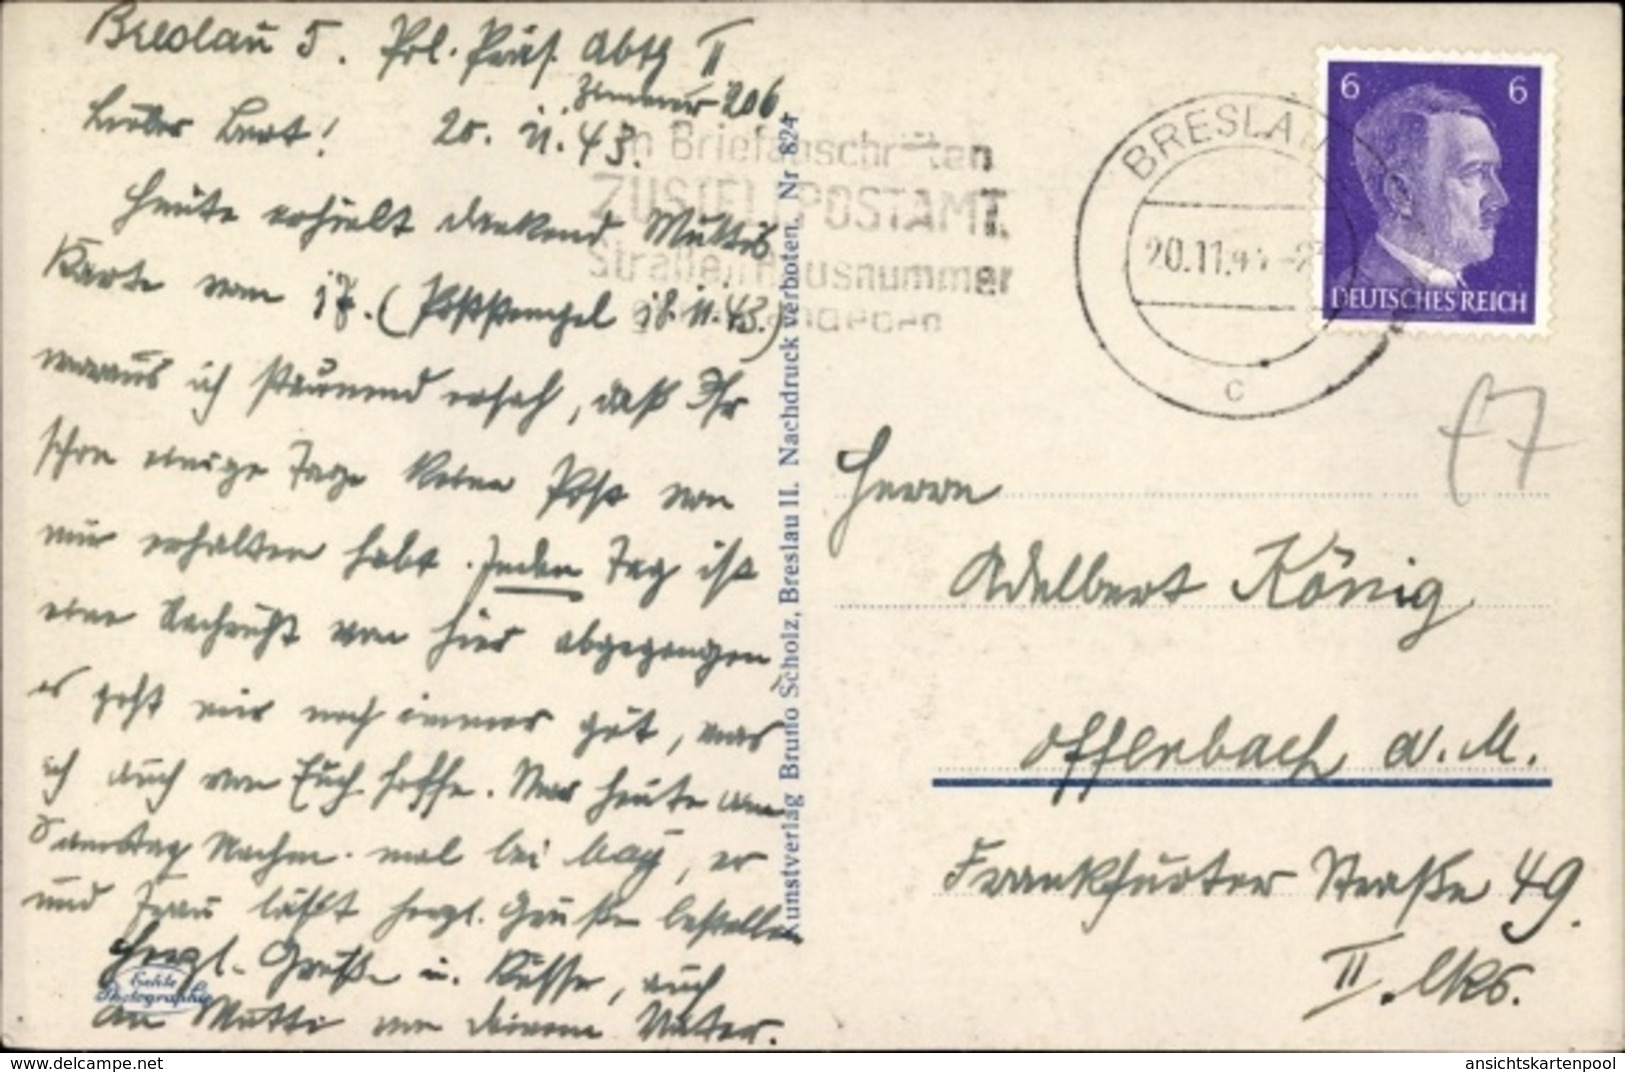 Breslau 5. Pol. Präs. Abtg II
Zimmer 206
Lieber Bert! 20. 11. 43.
Heute erhielt dankend Muttis
Karte vom 17. (Poststempel 18. 11. 43.)
woraus ich staunend ersah, daß Ihr
schon einige Tage keine Post von
mir erhalten habt. Jeden Tag ist
eine Nachricht von hier abgegangen,
es geht mir noch immer gut, was
ich auch von Euch hoffe. War heute am
Samstag Nachm. mal bei May, er
und Frau läßt herzl. Grüße bestellen
Herzl. Grüße u. Küsse, auch
an Mutti von deinem Vater.
Echte
Photographie
Kunstverlag Bruno Scholz, Breslau II. Nachdruck verboten. Nr 824
In Briefanschriften
ZUSTELLPOSTAMT,
Straße, Hausnummer
BRESLAU
20.11.
c
6 6
DEUTSCHES REICH
Herrn
Adelbert König
Offenbach a. M.
Frankfurter Straße 49.
II. lks.
delcampe.net
ansichtskartenpool